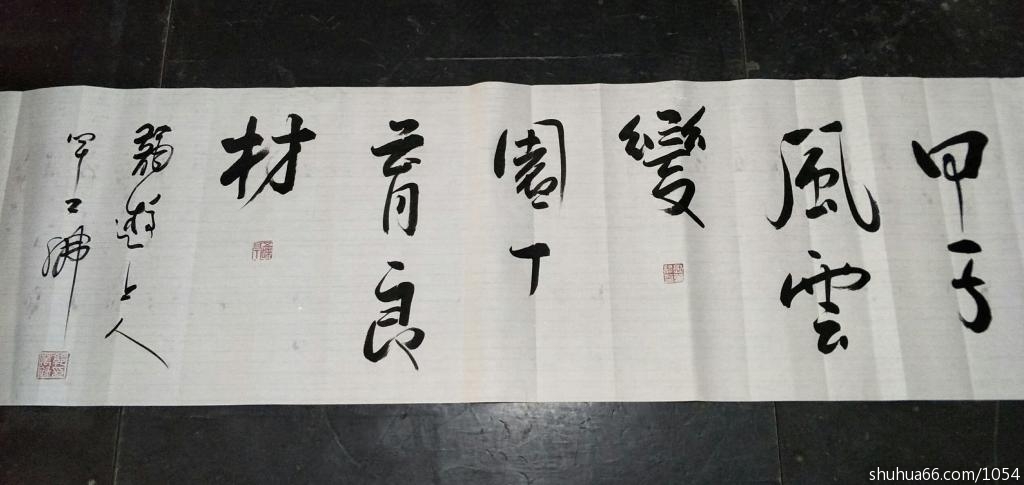 甲子
風雲
變
園丁
育良
材
上人
shuhua66.com/1054